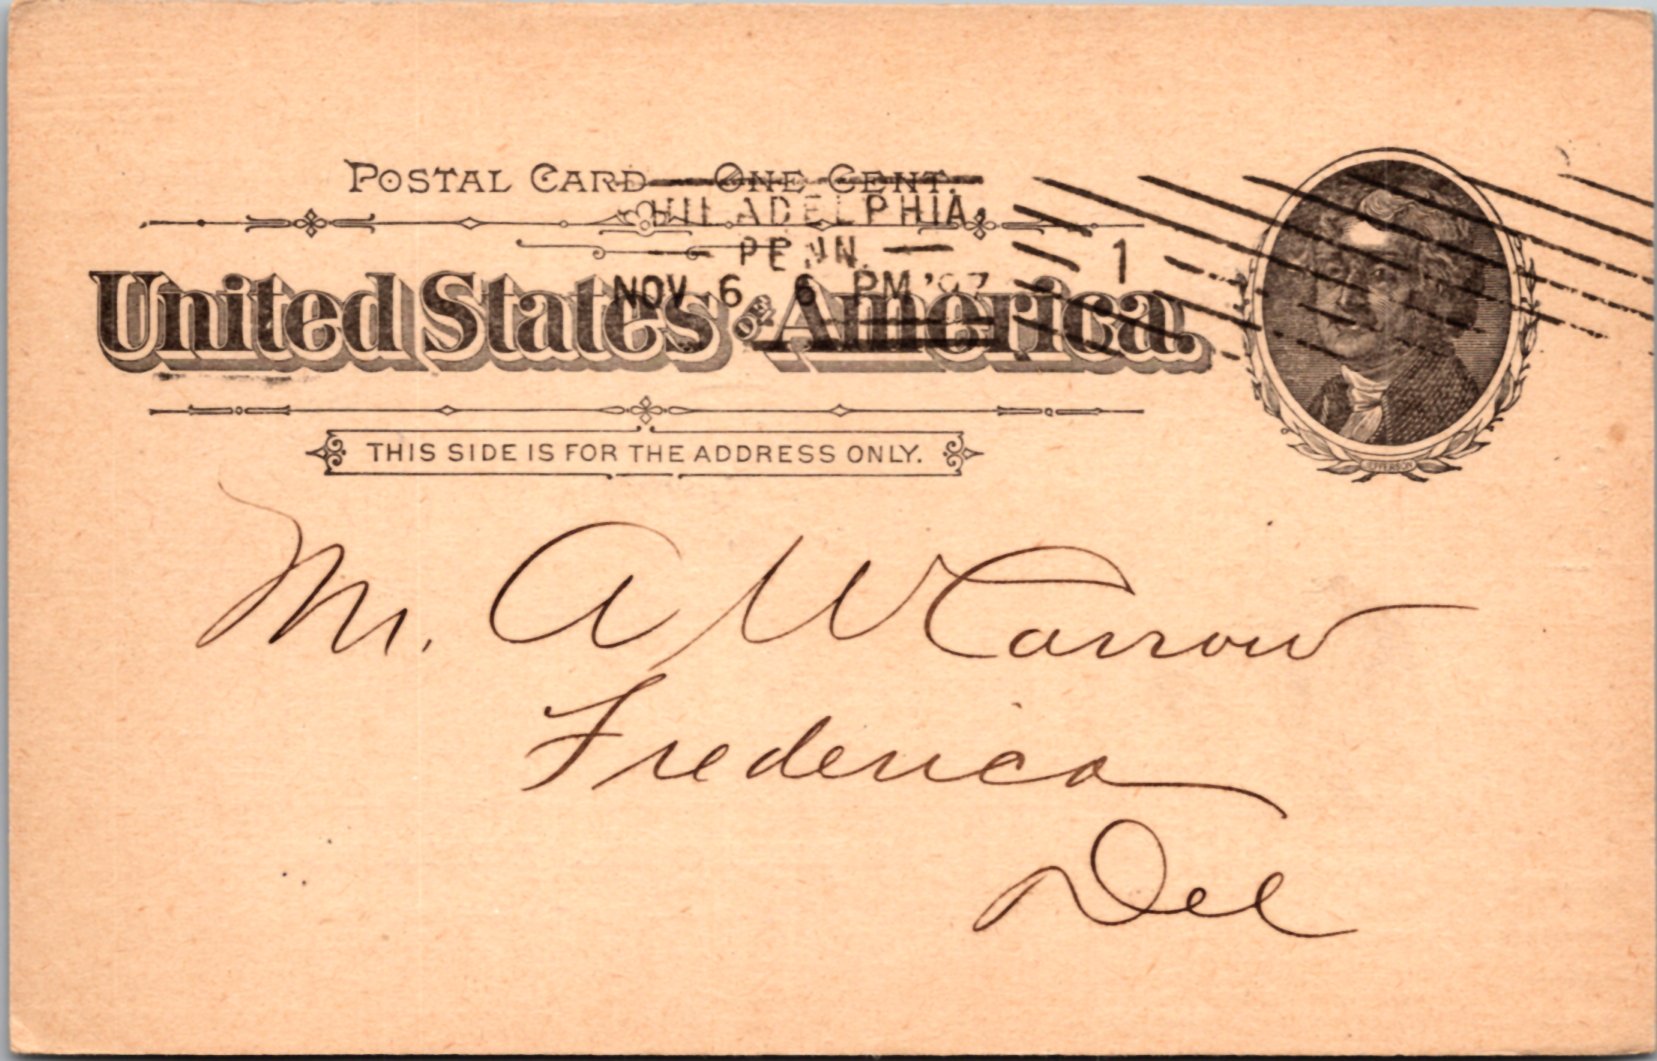 POSTAL CARD — ONE CENT.
PHILADELPHIA,
PENN. — 1
NOV 6 6 PM '97
United States OF America.
THIS SIDE IS FOR THE ADDRESS ONLY.
JEFFERSON
Mr. A W Carrow
Frederica
Del